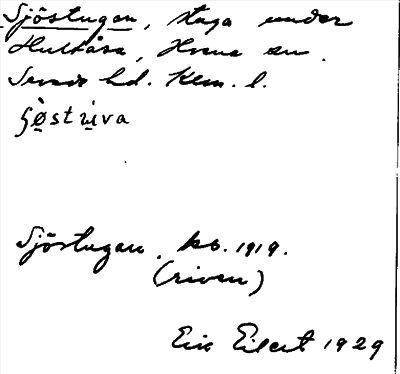 Sjöstugan, stuga under
Hultåsa, Hvena sn.
Sevede hd. Kem. l.
ʂø̀stu̇va
Sjöstugan, kb. 1919.
(riven)
Eric Eilert 1929